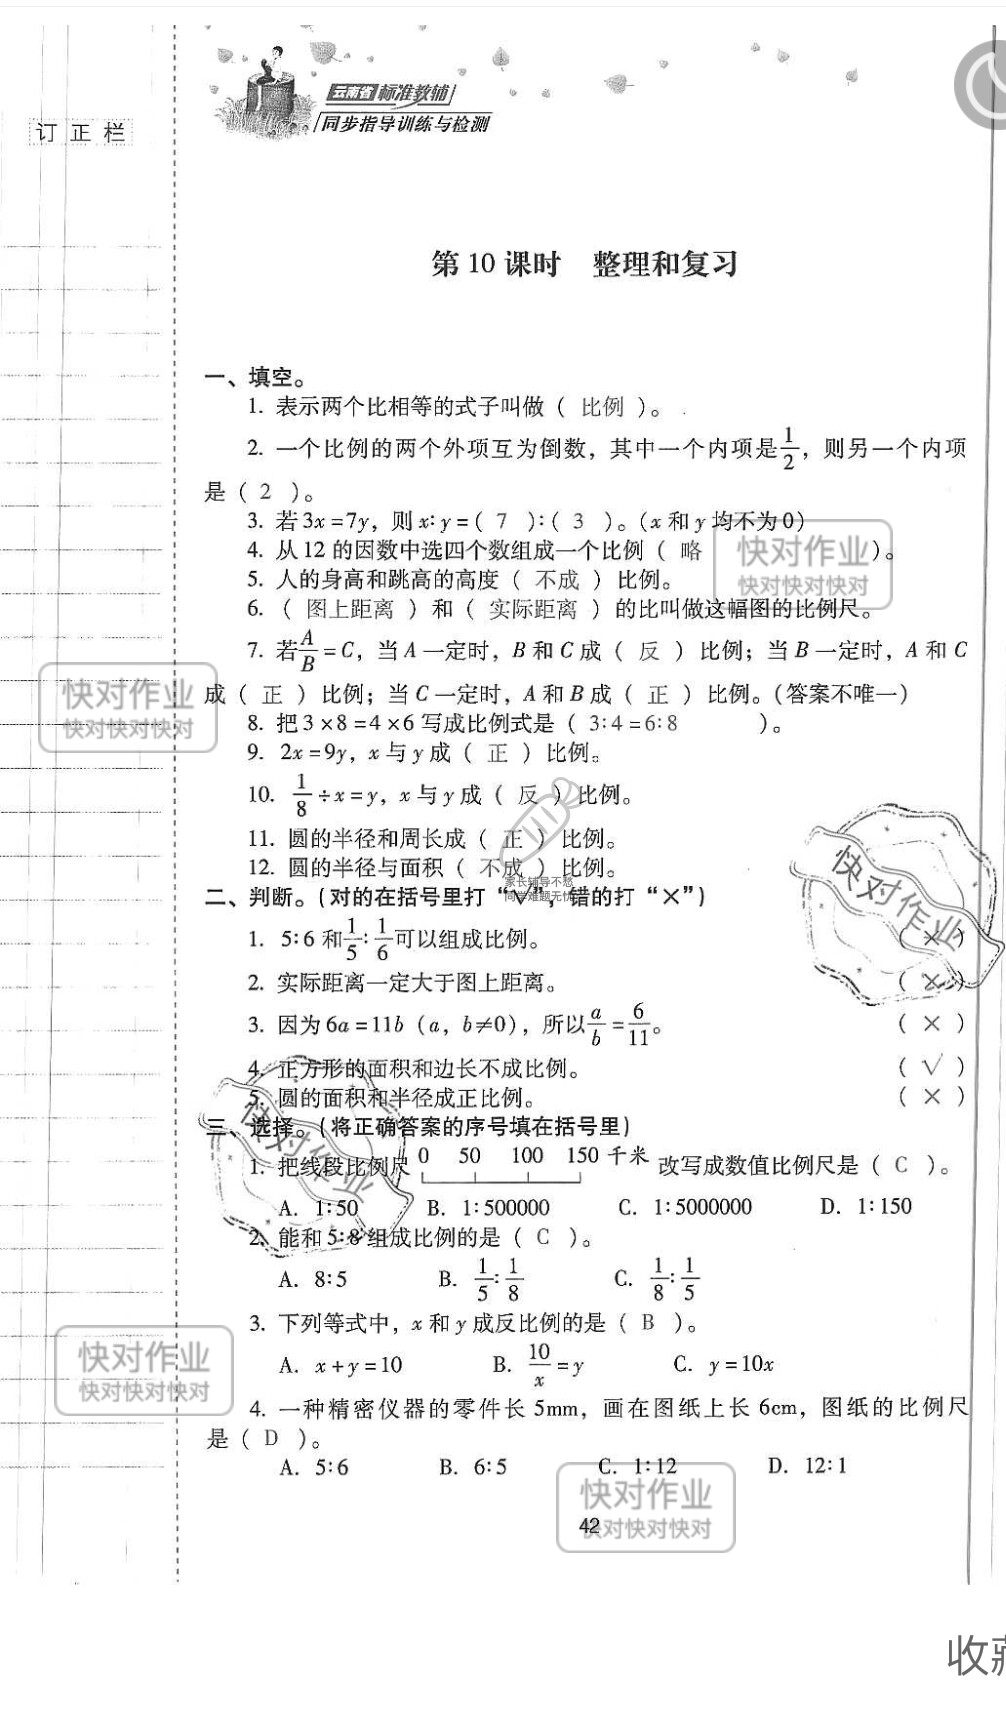 云南省 标准教辅
同步指导训练与检测
订正栏
第10课时 整理和复习
一、填空。
1. 表示两个比相等的式子叫做（ 比例 ）。
2. 一个比例的两个外项互为倒数，其中一个内项是1/2，则另一个内项
是（ 2 ）。
3. 若3x=7y，则x∶y=（ 7 ）∶（ 3 ）。（x和y均不为0）
4. 从12的因数中选四个数组成一个比例（ 略 ）。
5. 人的身高和跳高的高度（ 不成 ）比例。
6. （ 图上距离 ）和（ 实际距离 ）的比叫做这幅图的比例尺。
7. 若A/B=C，当A一定时，B和C成（ 反 ）比例；当B一定时，A和C
成（ 正 ）比例；当C一定时，A和B成（ 正 ）比例。（答案不唯一）
8. 把3×8=4×6写成比例式是（ 3∶4=6∶8 ）。
9. 2x=9y，x与y成（ 正 ）比例。
10. 1/8÷x=y，x与y成（ 反 ）比例。
11. 圆的半径和周长成（ 正 ）比例。
12. 圆的半径与面积（ 不成 ）比例。
家长辅导不愁
同学难题无忧
二、判断。（对的在括号里打“√”，错的打“×”）
1. 5∶6和1/5∶1/6可以组成比例。 （ × ）
2. 实际距离一定大于图上距离。 （ × ）
3. 因为6a=11b（a，b≠0），所以a/b=6/11。 （ × ）
4. 正方形的面积和边长不成比例。 （ √ ）
5. 圆的面积和半径成正比例。 （ × ）
三、选择。（将正确答案的序号填在括号里）
1. 把线段比例尺 0 50 100 150千米 改写成数值比例尺是（ C ）。
A. 1∶50 B. 1∶500000 C. 1∶5000000 D. 1∶150
2. 能和5∶8组成比例的是（ C ）。
A. 8∶5 B. 1/5∶1/8 C. 1/8∶1/5
3. 下列等式中，x和y成反比例的是（ B ）。
A. x+y=10 B. 10/x=y C. y=10x
4. 一种精密仪器的零件长5mm，画在图纸上长6cm，图纸的比例尺
是（ D ）。
A. 5∶6 B. 6∶5 C. 1∶12 D. 12∶1
42
快对作业
快对快对快对
快对作业
快对快对快对
快对作业
快对作业
快对作业
快对快对快对
快对作业
快对快对快对
收藏